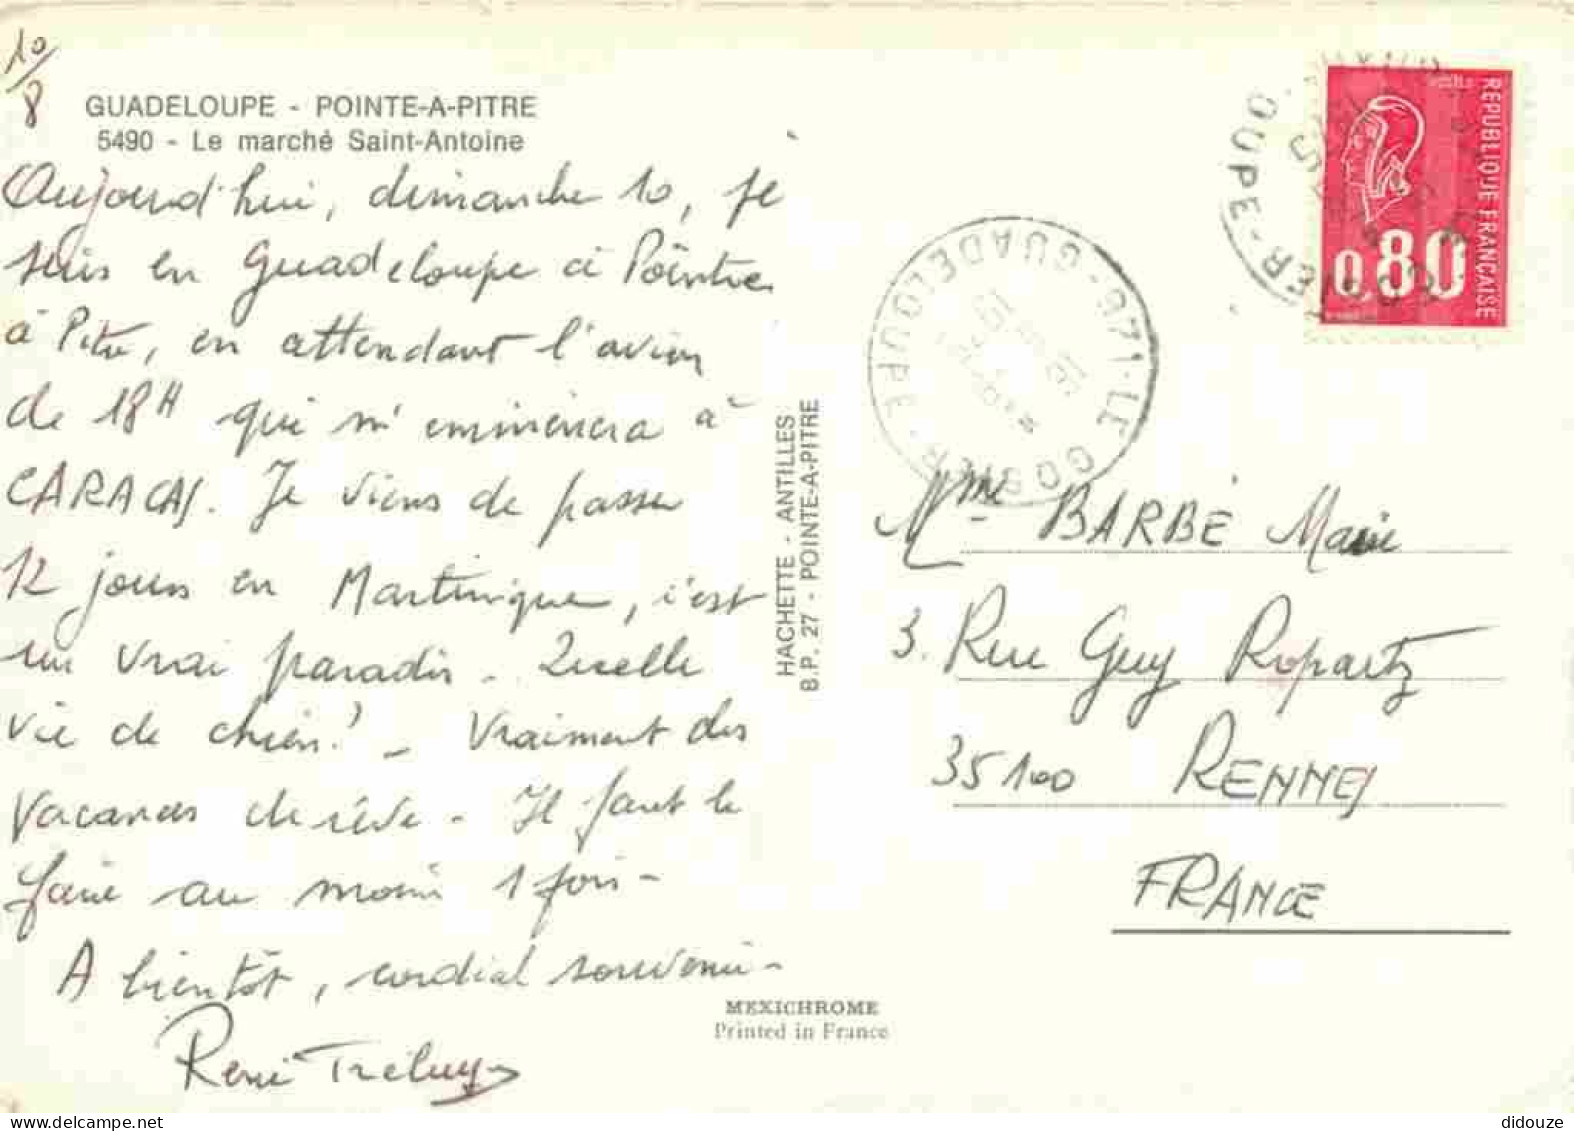 10/8
GUADELOUPE - POINTE-A-PITRE
5490 - Le marché Saint-Antoine
Aujourd'hui, dimanche 10, je
suis en Guadeloupe à Pointre
à Pitre, en attendant l'avion
de 18H qui m'emmènera à
CARACAS. Je viens de passer
12 jours en Martinique, c'est
un vrai paradis - Quelle
vie de chien! - Vraiment des
vacances de rêve - Il faut le
faire au moins 1 fois -
A bientôt, cordial souvenir -
René
HACHETTE - ANTILLES
B.P. 27 - POINTE-A-PITRE
MEXICHROME
Printed in France
971-LE GOSIER-GUADELOUPE
REPUBLIQUE FRANCAISE
0,80
OUPE-E
Mme BARBÉ Marie
3. Rue Guy Ropartz
35100 RENNES
FRANCE
didouze